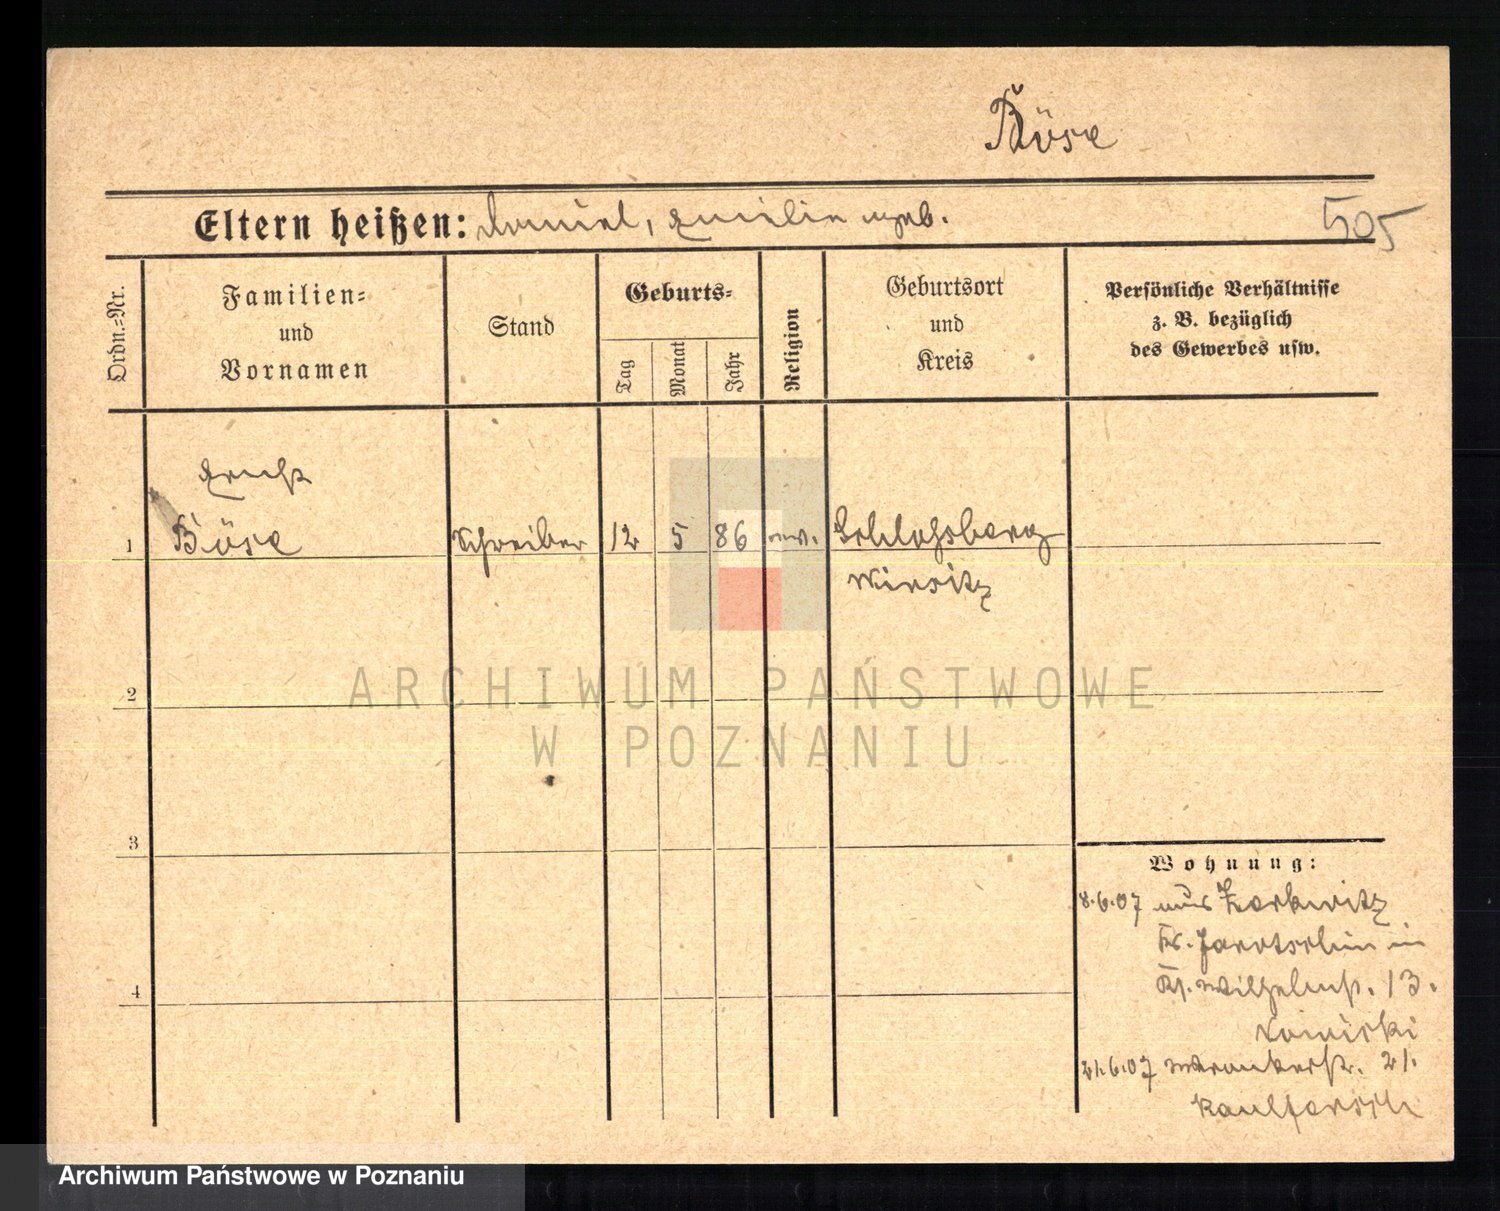 Böse
Eltern heißen: Daniel, Emilie
505
Ordn.-Nr.
Familien-
und
Vornamen
Stand
Geburts-
Tag
Monat
Jahr
Religion
Geburtsort
und
Kreis
Persönliche Verhältnisse
z. B. bezüglich
des Gewerbes usw.
1
Böse
Schreiber 12 5 86 ev. Schloßberg
Wirsitz
2
ARCHIWUM PAŃSTWOWE
W POZNANIU
3
Wohnung:
8.6.07 aus Zerkwitz
Kr. Jarotschin in
Wilhelmstr. 13.
4
21.6.07 21.
Archiwum Państwowe w Poznaniu